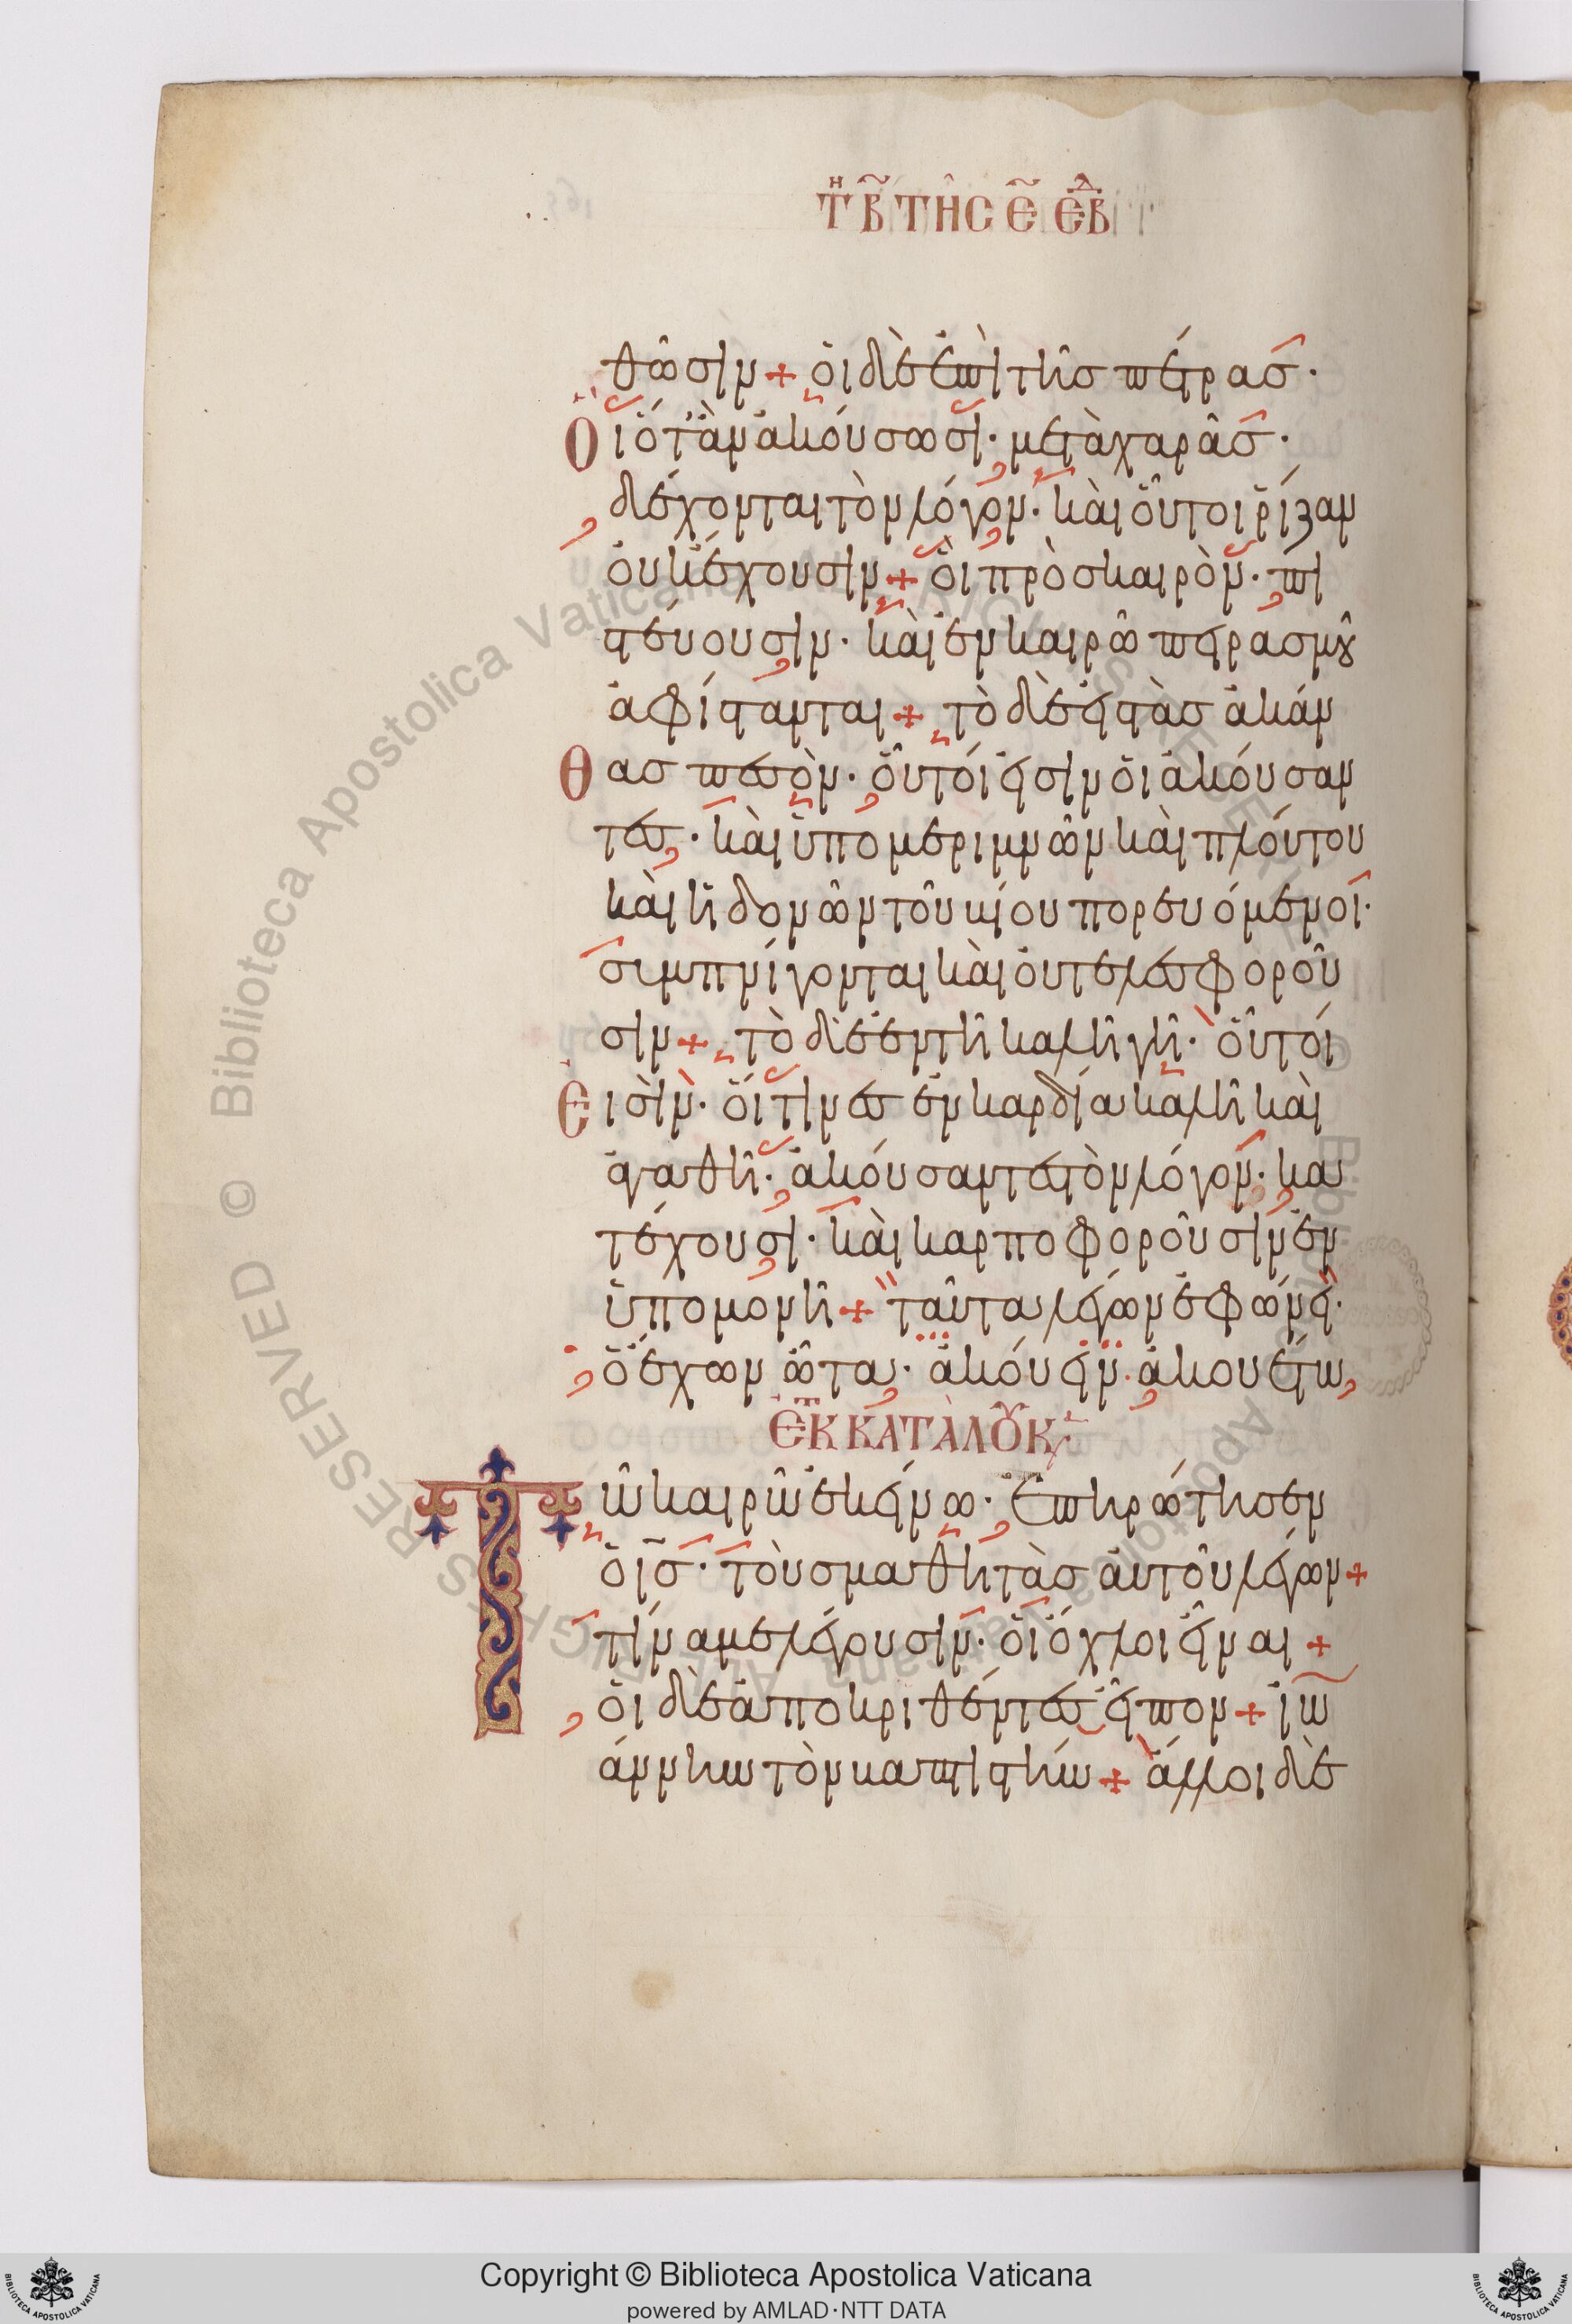 Τῆ Β̃ ΤΗ̂C Ε̃ ἙΒΔ
θῶσιν + ὁι δὲ ἐπὶ τῆσ πέτρασ·
Ὁι ὅτἂν ἀκόυσωσι· μετὰ χαρᾶσ·
δέχονται τὸν λόγον· κὰι ὅυτοι ῥίζαν
ὀυκ ἔχουσιν + ὃι πρὸσ καιρὸν· πι
στέυουσιν· κὰι ἐν καιρῶ πειρασμοῦ
ἀφίστανται + τὸ δὲ εἰς τὰσ ἀκάν
Θασ πεσὸν· ὅυτοί εἰσιν ὁι ἀκόυσαν
τεσ· κὰι ὑπο μεριμνῶν κὰι πλόυτου
κὰι ἡδονῶν τοῦ βίου πορευόμενοι·
συμπνίγονται κὰι ὀυ τελεσφοροῦ
σιν + τὸ δὲ ἐν τῆ καλῆ γῆ· ὅυτοί
Εισὶν· ὅιτινεσ ἐν καρδία καλῆ κὰι
ἀγαθῆ· ἀκόυσαντεσ τὸν λόγον· κα
τέχουσι· κὰι καρποφοροῦσιν ἐν
ὑπομονῆ + ταῦτα λέγων ἐφώνει·
ὁ ἔχων ὦτα· ἀκόυειν· ἀκουέτω
ἘΚ Τ ΚΑΤᾺ ΛΟΥΚ
Τῶ καιρῶ ἐκείνω· ἐπηρώτησεν
ὁ ισ· τοὺσ μαθητὰσ ἀυτοῦ λέγων +
τίνα με λέγουσιν· ὁι ὄχλοι εἶναι +
ὁι δὲ ἀποκριθέντεσ εἶπον + ἰω
άννην τὸν βαπτιστήν + ἄλλοι δὲ
Copyright © Biblioteca Apostolica Vaticana
powered by AMLAD·NTT DATA